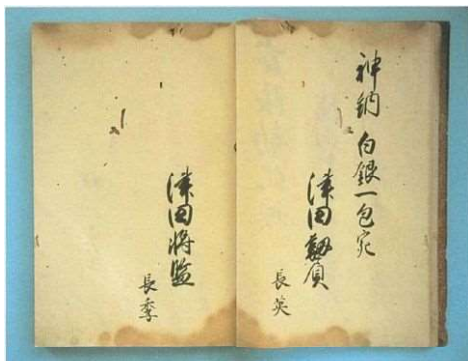 神納白銀一包宛
津田靱負
長英
津田将監
長季